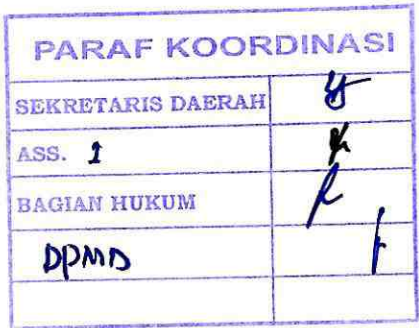 PARAF KOORDINASI
SEKRETARIS DAERAH
ASS. 1
BAGIAN HUKUM
DPMD